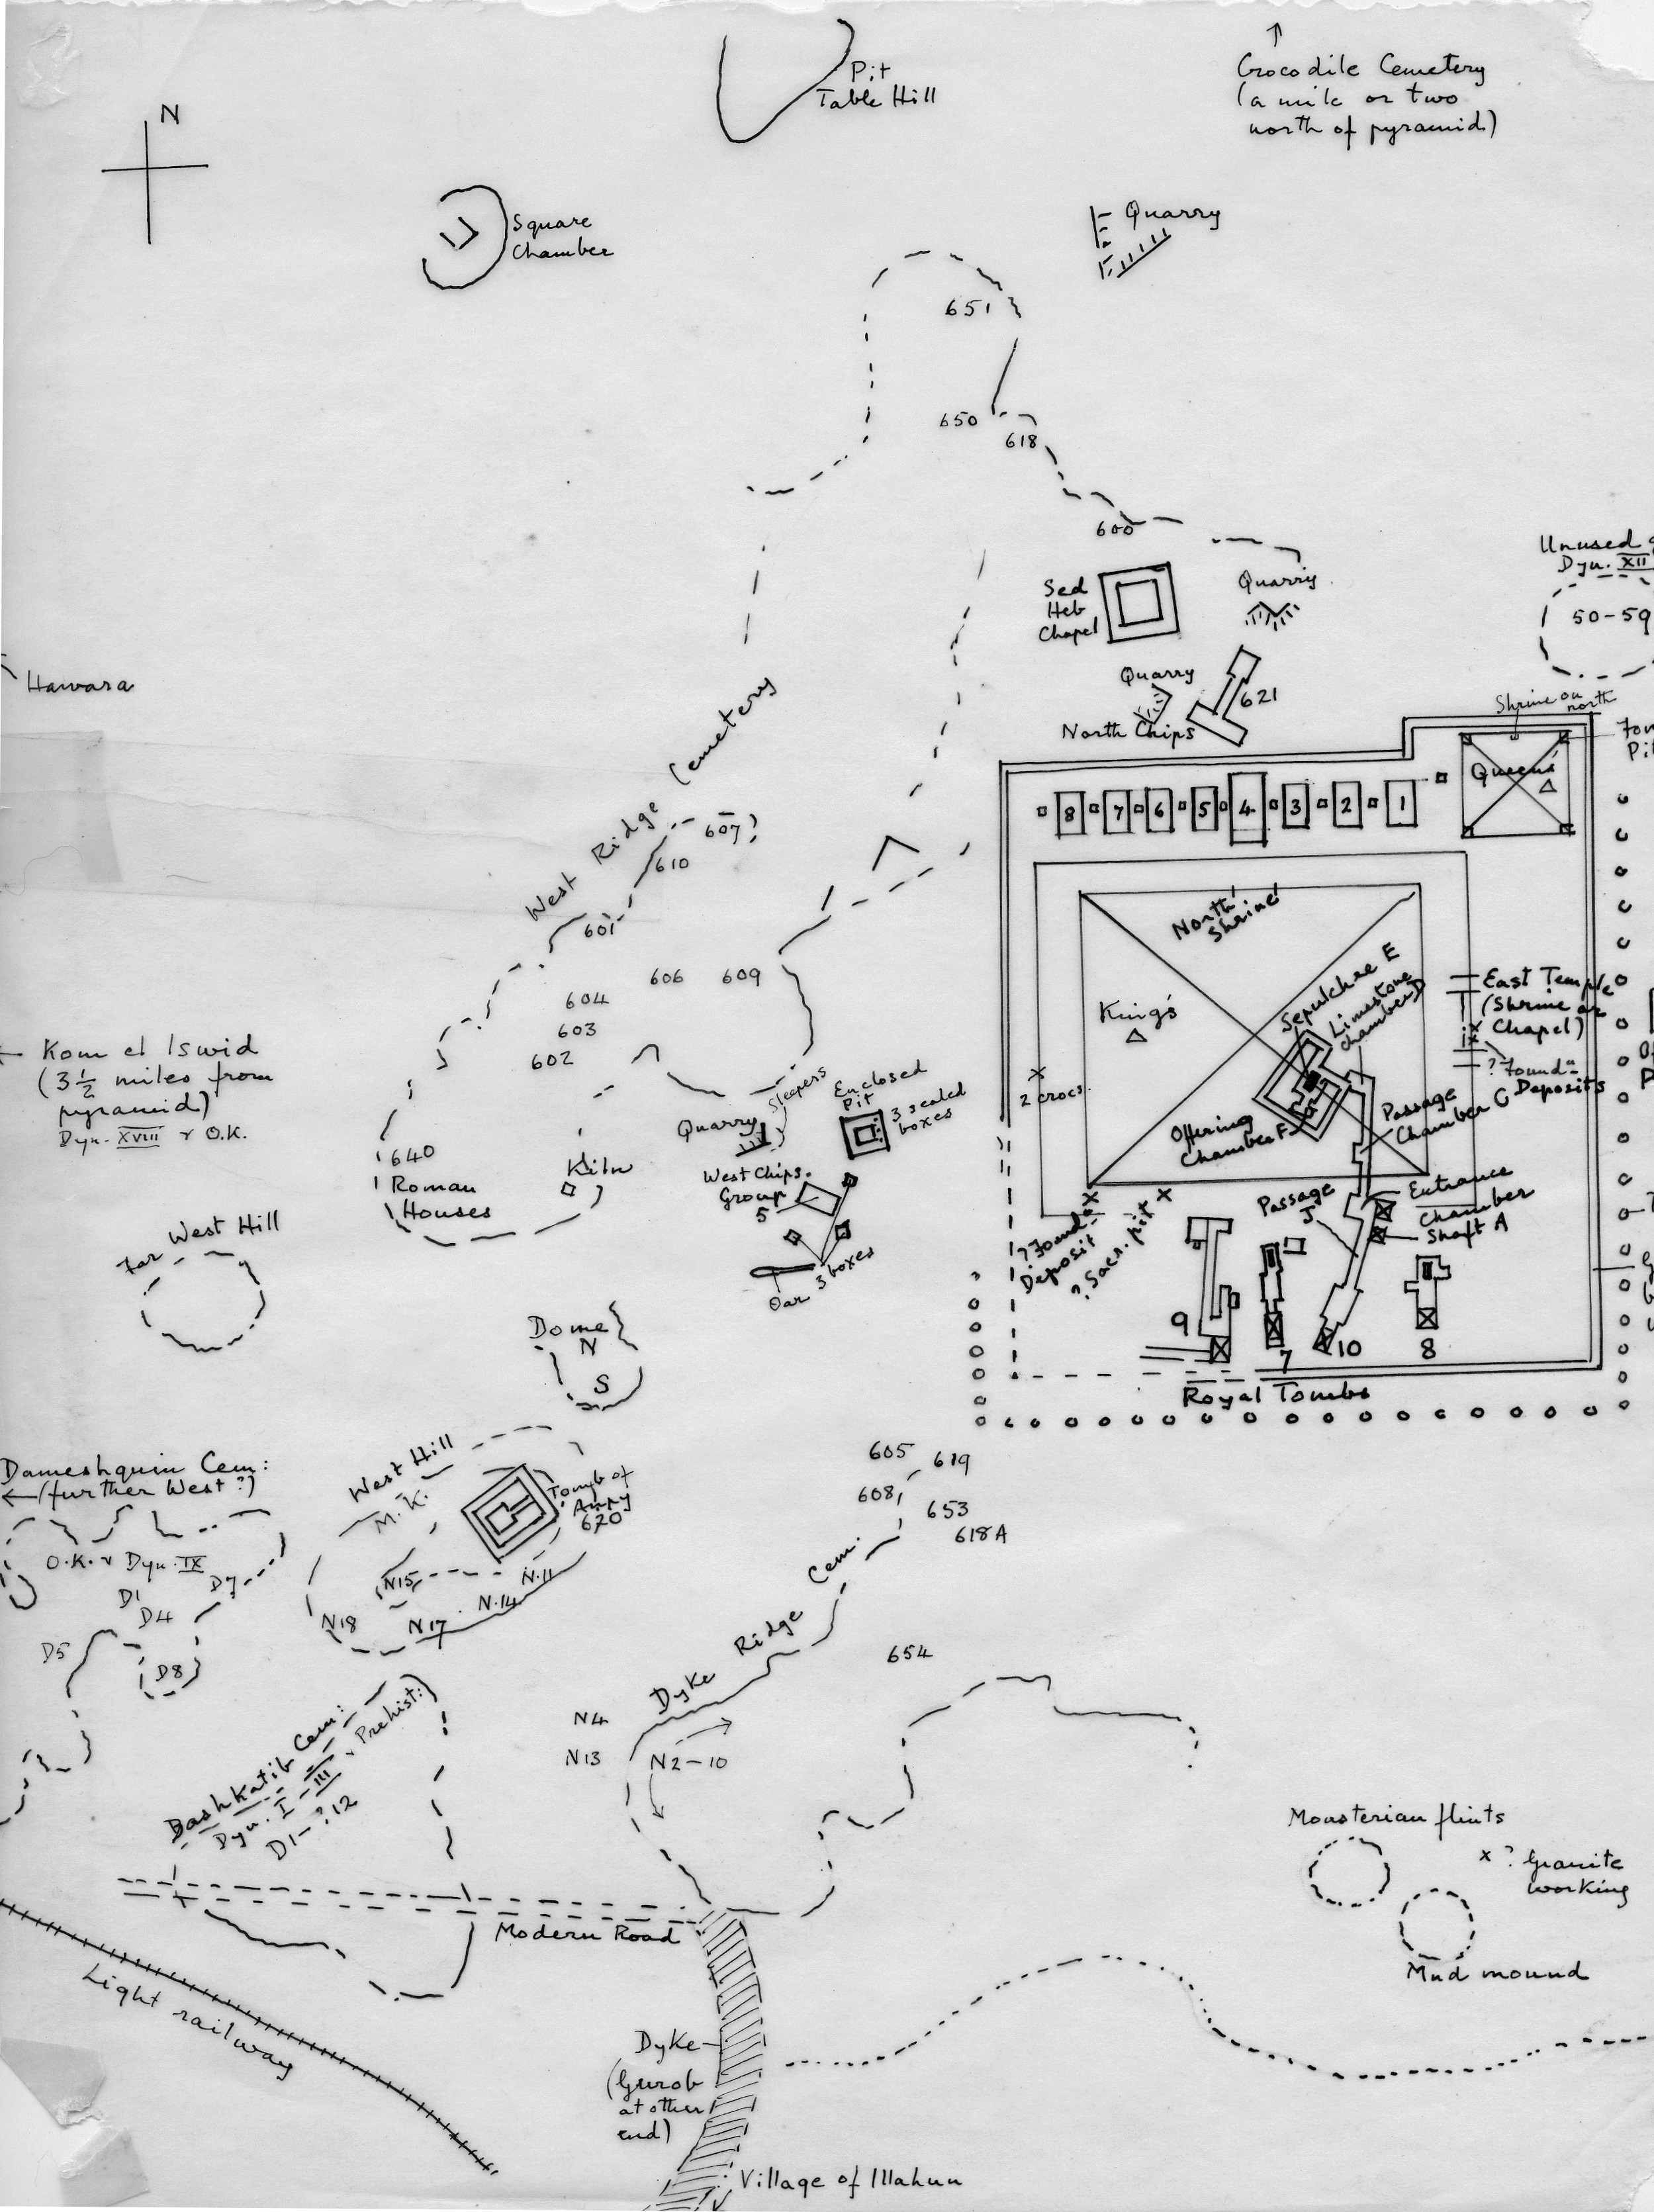 N
Pit
Table Hill
↑
Crocodile Cemetery
(a mile or two
north of pyramid)
Square
Chamber
Quarry
651
650
618
600
Unused
Dyn. XII
50-59
Sed
Heb
Chapel
Quarry
Hawara
Quarry
621
North Chips
Shrine on
north
Queen's
△
8 7 6 5 4 3 2 1
West Ridge Cemetery
607?
610
601
606 609
604
603
602
North
Shrine
King's
△
Sepulchre E
Limestone
Chamber D
East Temple
(Shrine or
Chapel)
? Found:
Deposits
Passage
Chamber C
Offering
Chamber F
x
2 crocs.
← Kom el Iswid
(3½ miles from
pyramid)
Dyn. XVIII & O.K.
Sleepers
Enclosed
Pit
3 sealed
boxes
Quarry
West Chips.
Group
5
640
Roman
Houses
Kiln
Oar
3 boxes
Entrance
Chamber
Shaft A
Passage
J
? Found:
Deposit
? Sacr. pit
Far West Hill
Dome
N
S
9 7 10 8
Royal Tombs
Dameshquin Cem:
← (further West?)
O.K. & Dyn. IX
D1
D7
D4
D5
D8
West Hill
M.K.
Tomb of
Anpy
620
N15
N.11
N.14
N18
N17
605 619
608
653
618A
Dyke Ridge Cem.
654
N4
N13
N2-10
Bashkatib Cem:
Dyn. I-III & Prehist:)
D1-?12
Mousterian flints
x ? Granite
working
Mud mound
Modern Road
Light railway
Dyke
(Gurob
at other
end)
Village of Illahun